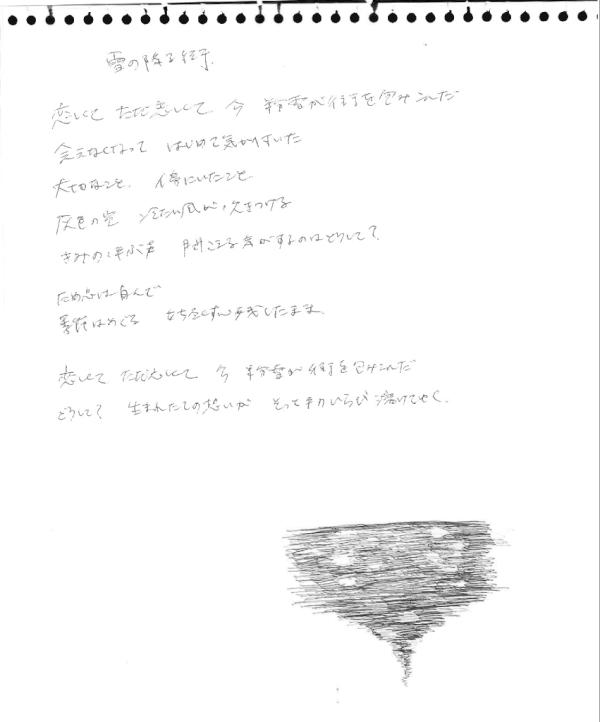 雪の降る街
恋しくて ただ恋しくて 今 粉雪が街を包みこんだ
会えなくなって はじめて気が付いた
大切なこと 傍にいたこと
灰色の空 冷たい風が 吹きつける
きみの呼ぶ声 聞こえる気がするのはどうして?
ため息は白んで
季節はめぐる 立ち尽くす 残したまま
恋しくて ただ恋しくて 今 粉雪が街を包みこんだ
どうして? 生まれたての想いが そっと手のひらで溶けてゆく